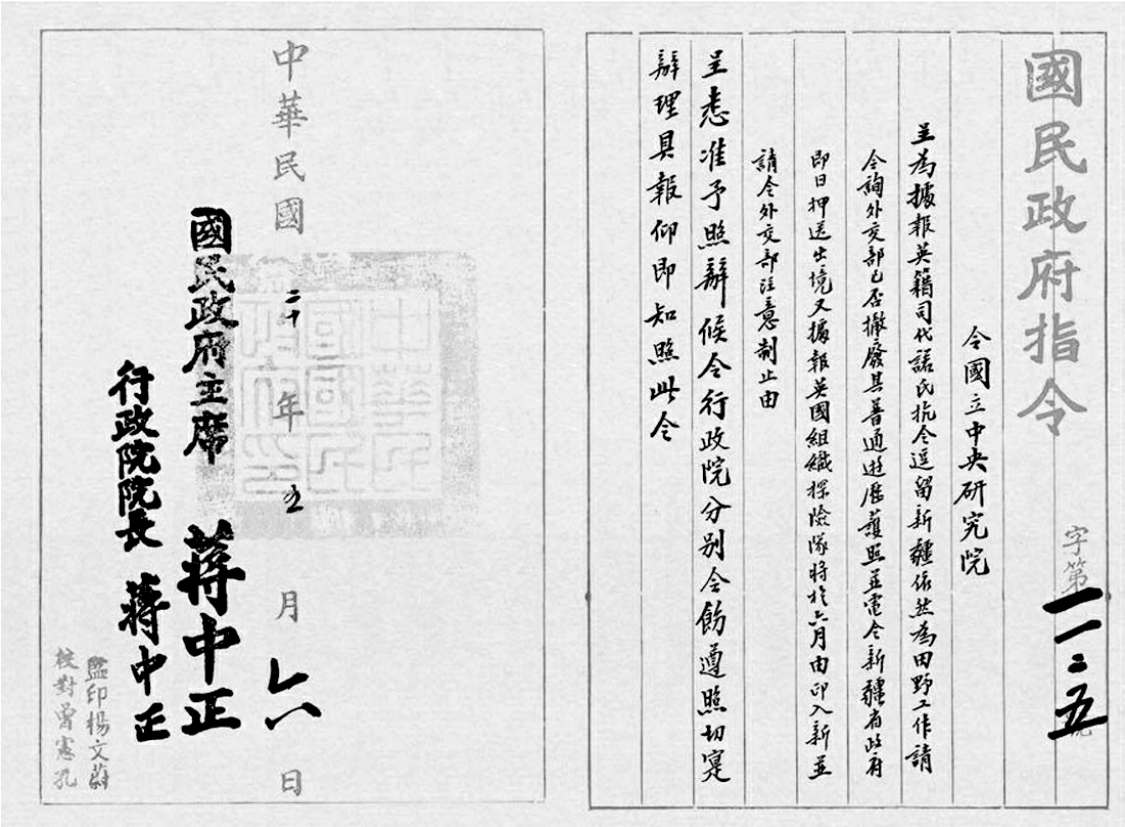 國民政府指令
字第一一二五號
令國立中央研究院
呈為據報英籍司代諾氏抗令逗留新疆依然為田野工作請
令詢外交部已否撤廢其普通遊歷護照並電令新疆省政府
即日押送出境又據報英國組織探險隊將於六月由印入新並
請令外交部注意制止由
呈悉准予照辦候令行政院分別令飭遵照切實
辦理具報仰即知照此令
中華民國二十年五月六日
國民政府主席 蔣中正
行政院院長 蔣中正
監印楊文蔚
校對曾憲孔